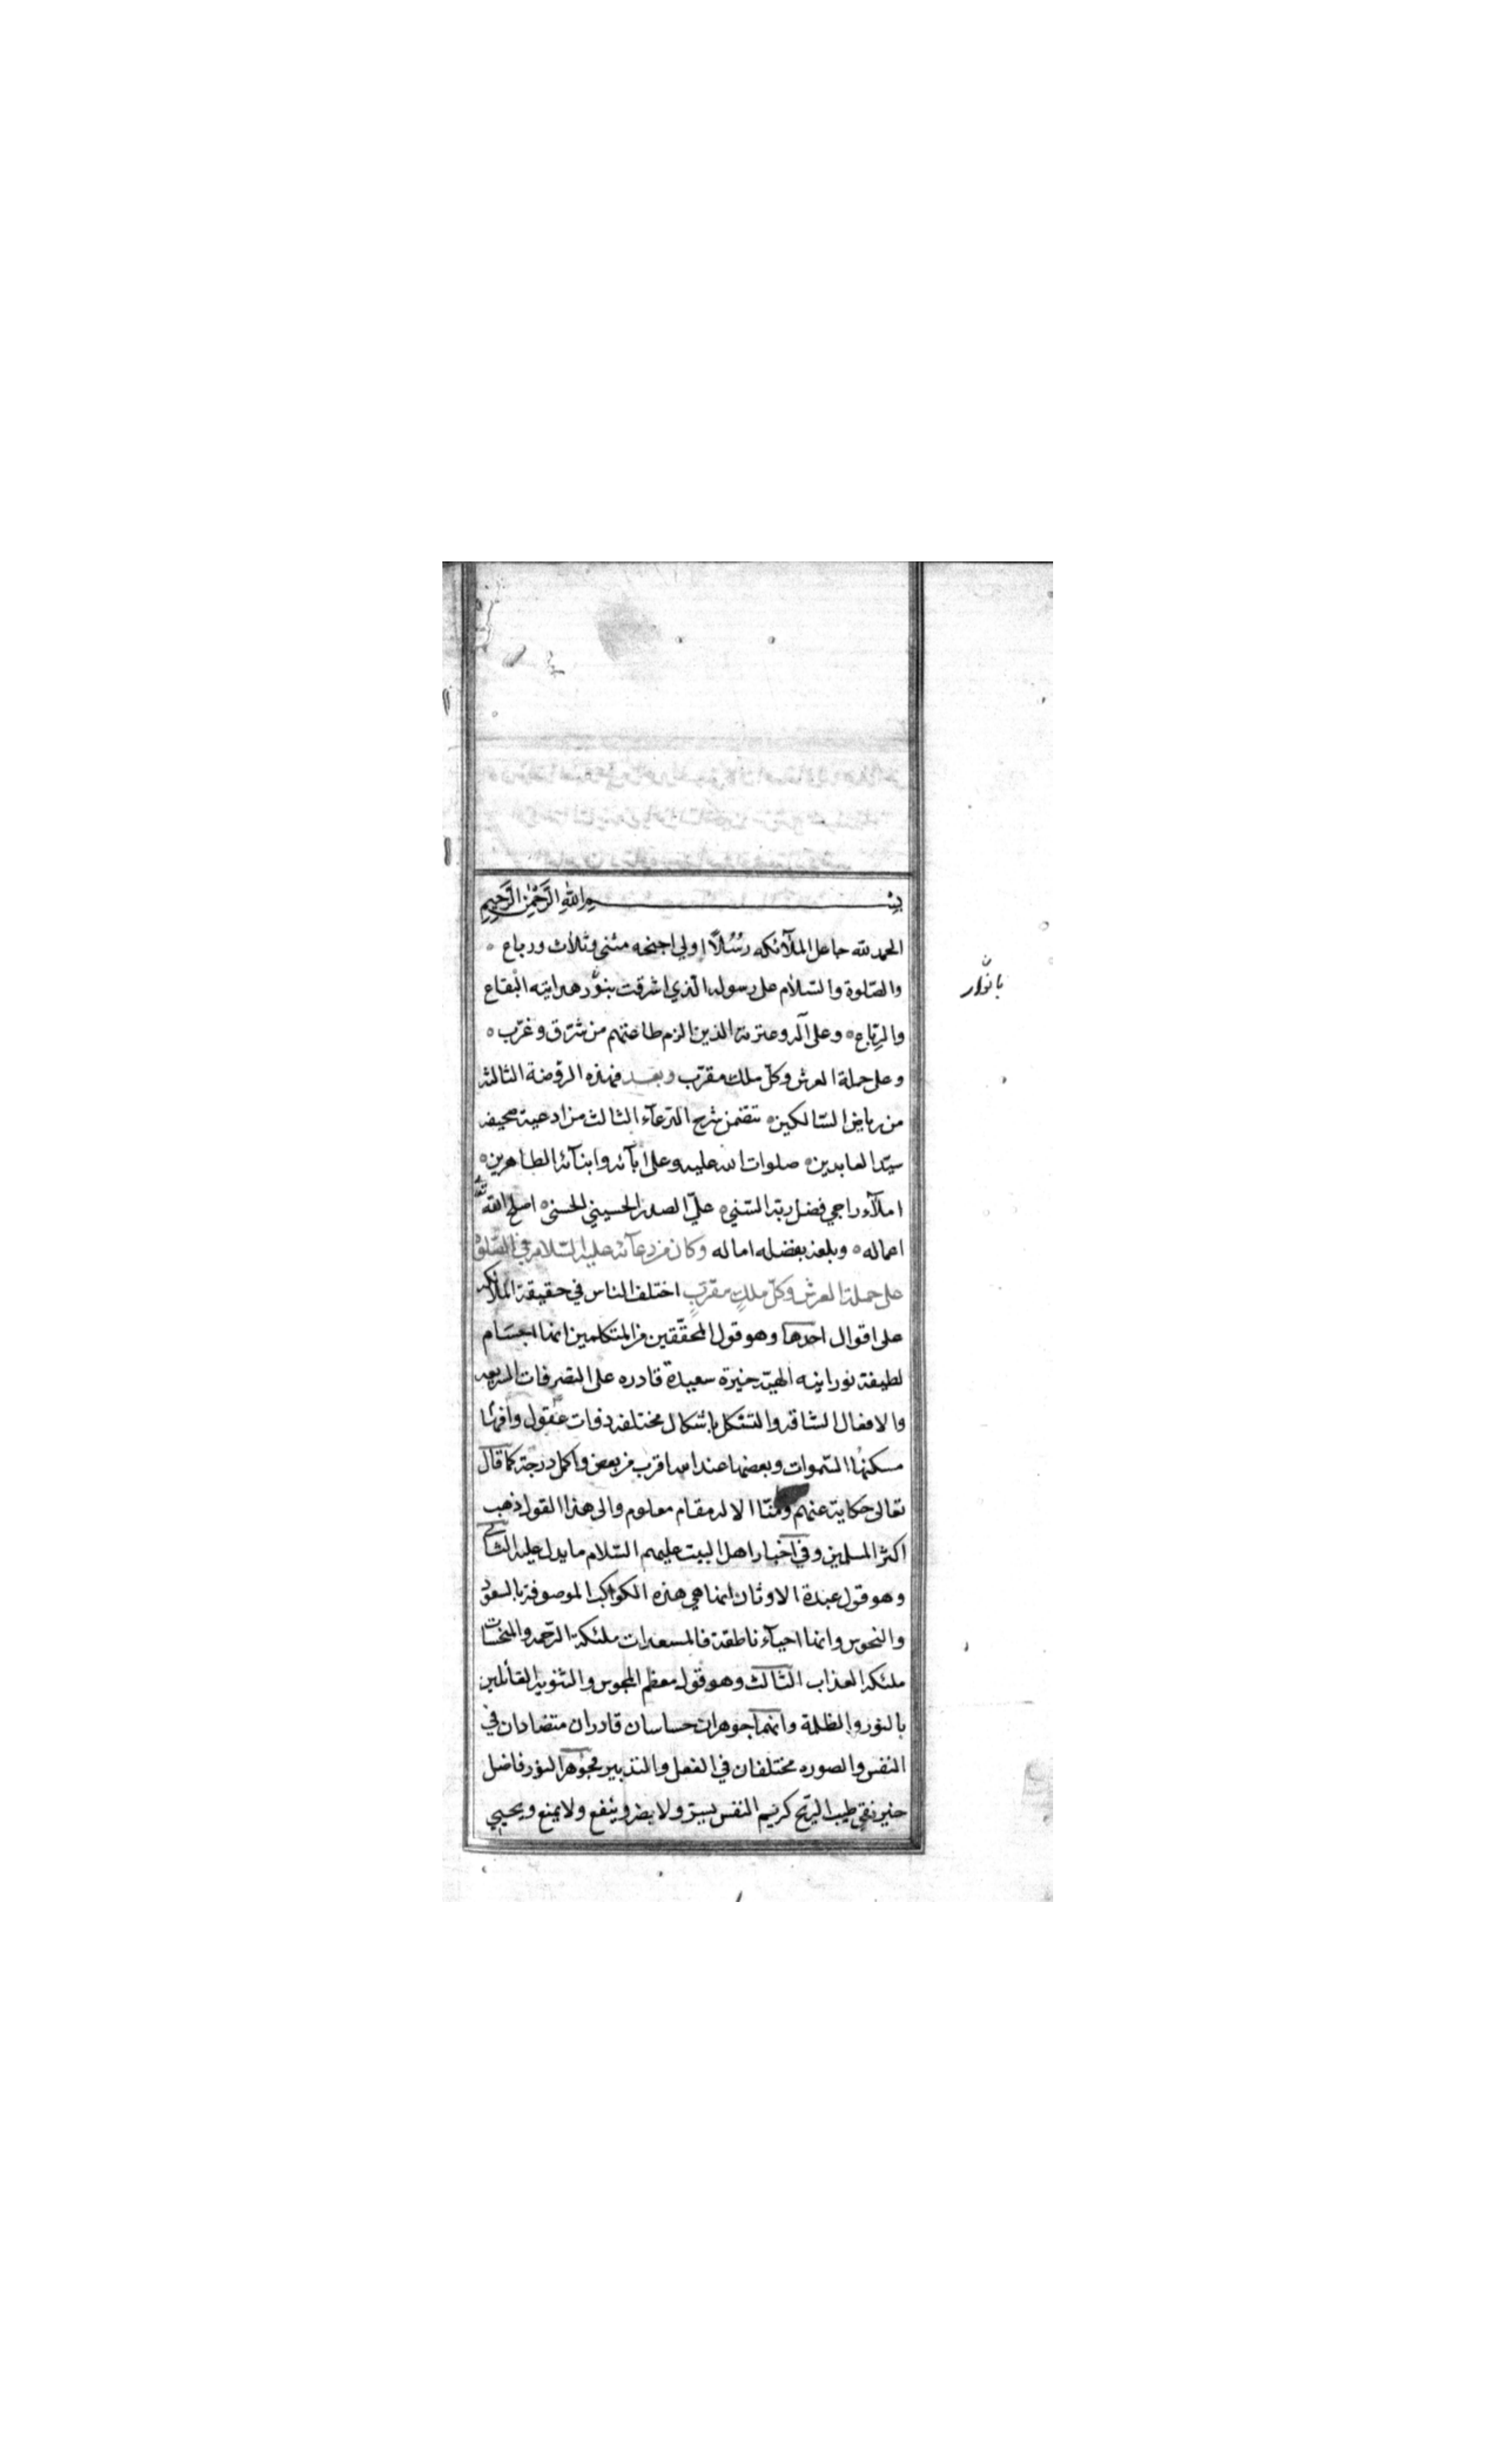 بسم الله الرحمن الرحيم
الحمد لله جاعل الملآئكه رسُلًا اولي اجنحه مثنى وثلاث ورباع ٥
والصّلوة والسّلام على رسوله الّذي اشرقت بنوُر هدايته البقاع
بانوار
والرباع ٥ وعلى آله وعترته الذين الزم طاعتهم من شرّق وغرّب ٥
وعلى حملة العرش وكلّ ملك مقرّب وبعد فهذه الروّضة الثالثه
من رياض السّالكين ٥ تتضمن شرح الدّعآء الثالث من ادعية صحيفه
سيّد العابدين ٥ صلوات الله عليه وعلى ابآئه وابنآئه الطاهرين ٥
املآء راجي فضل ربّه السّني ٥ عليّ الصدر الحسيني الحسني ٥ اصلح الله
اعماله ٥ وبلغه بفضله اماله وكان من دعآئه عليه السّلام في الصّلوة
على حملة العرش وكلّ ملكٍ مقرّبٍ اختلف الناس في حقيقة الملائكه
على اقوال احدها وهو قول المحقّقين من المتكلمين انها اجسام
لطيفة نورانيه الهيّة خيرة سعيدة قادره على التصرفات السريعه
والافعال الشاقه والتشكل باشكال مختلفه ذوات عقول وافهام
مسكنها السّموات وبعضها عند الله اقرب من بعض واكمل درجة كما قال
تعالى حكاية عنهم وما منّا الا له مقام معلوم والى هذا القول ذهب
اكثر المسلمين وفي اخبار اهل البيت عليهم السّلام ما يدل عليه الثاني
وهو قول عبدة الاوثان انها هي هذه الكواكب الموصوفة بالسعود
والنحوس وانها احيآء ناطقة فالمسعدات ملئكة الرّحمه والمنحسات
ملئكة العذاب الثالث وهو قول معظم المجوس والثنويه القائلين
بالنور والظلمة وانهما جوهران حساسان قادران متضادان في
النفس والصوره مختلفان في الفعل والتدبير فجوهر النور فاضل
خير نقي طيب الريّح كريم النفس يسرّ ولا يضر وينفع ولا يمنع ويحيي